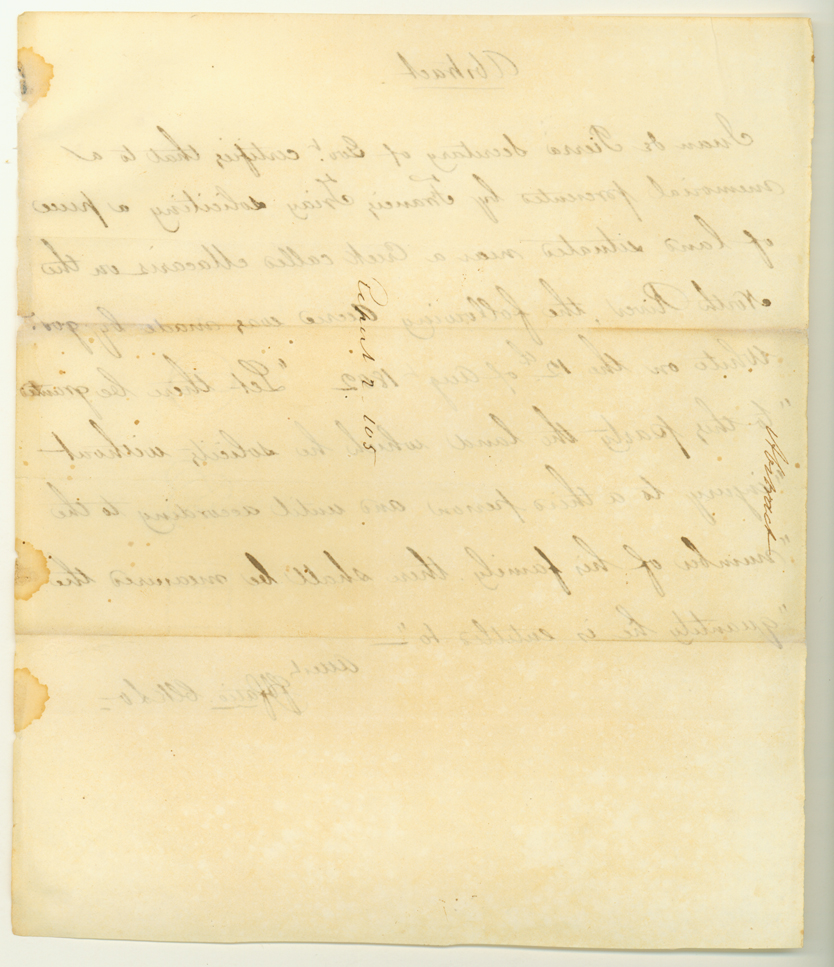 Abstract
Juan de Pierra Secretary of Govt. certifies, that to a
memorial presented by Francis Triay soliciting a piece
of land situated near a Creek called Macaris on the
North River, the following decree was made by govr
White on the 12th of Aug 1802 "Let there be granted
"to this party the land which he solicits, without
"injury to a third person and until according to the
"number of his family there shall be measured the
"quantity he is entitled to"—
2. 108
Abstract